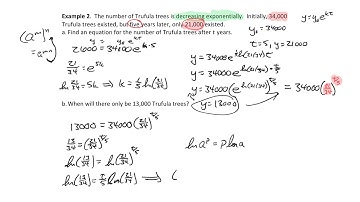 Example 2. The number of Trufula trees is decreasing exponentially. Initially, 34,000
Trufula trees existed, but five years later, only 21,000 existed.
a. Find an equation for the number of Trufula trees after t years.
y = y₀e^{kt}
y₀ = 34000
t = 5, y = 21000
(a^m)^n
= a^{mn}
21000 = 34000e^{k·5}
21/34 = e^{5k}
ln(21/34) = 5k ⇒ k = 1/5 ln(21/34)
y = 34000e^{t/5 ln(21/34)}
y = 34000e^{ln(21/34)^{t/5}}
y = 34000(e^{ln(21/34)})^{t/5} = 34000(21/34)^{t/5}
b. When will there only be 13,000 Trufula trees?
y = 13000
13000 = 34000(21/34)^{t/5}
13/34 = (21/34)^{t/5}
ln(13/34) = ln(21/34)^{t/5}
ln a^p = p ln a
ln(13/34) = t/5 ln(21/34) ⟹ (